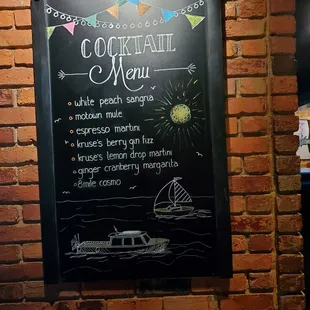 COCKTAIL
Menu
white peach sangria
motown mule
espresso martini
kruse's berry gin fizz
kruse's lemon drop martini
ginger cranberry margarita
8mile cosmo